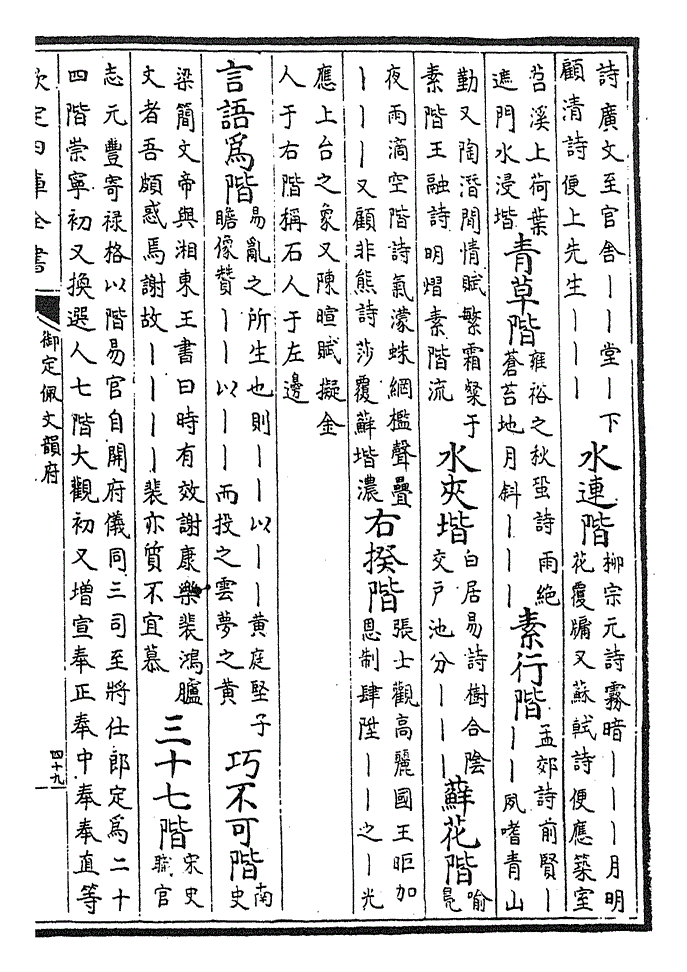 詩廣文至官舍丨丨堂丨下
顧清詩便上先生丨丨丨
水連階
柳宗元詩霧暗丨丨丨月明
花覆牖又蘇軾詩便應築室
苕溪上荷葉
遮門水浸堦
青草階
雍裕之秋蛩詩雨絶
蒼苔地月斜丨丨丨
素行階
孟郊詩前賢丨
丨丨夙嗜青山
勤又陶潛閒情賦繁霜粲于
素階王融詩明熠素階流
水夾堦
白居易詩樹合陰
交戶池分丨丨丨
蘚花階
喻
鳧
夜雨滴空階詩氣濛蛛網檻聲疊
丨丨丨又顧非熊詩莎覆蘚堦濃
右揆階
張士觀高麗國王昛加
恩制肆陞丨丨丨之丨光
應上台之象又陳暄賦擬金
人于右階稱石人于左邊
言語爲階
易亂之所生也則丨丨以丨丨黃庭堅子
瞻像贊丨丨以丨丨而投之雲夢之黃
巧不可階
南
史
梁簡文帝與湘東王書曰時有效謝康樂裴鴻臚
文者吾頗惑焉謝故丨丨丨丨裴亦質不宜慕
三十七階
宋史
職官
志元豐寄祿格以階易官自開府儀同三司至將仕郎定爲二十
四階崇寧初又換選人七階大觀初又增宣奉正奉中奉奉直等
欽定四庫全書
御定佩文韻府
四十九